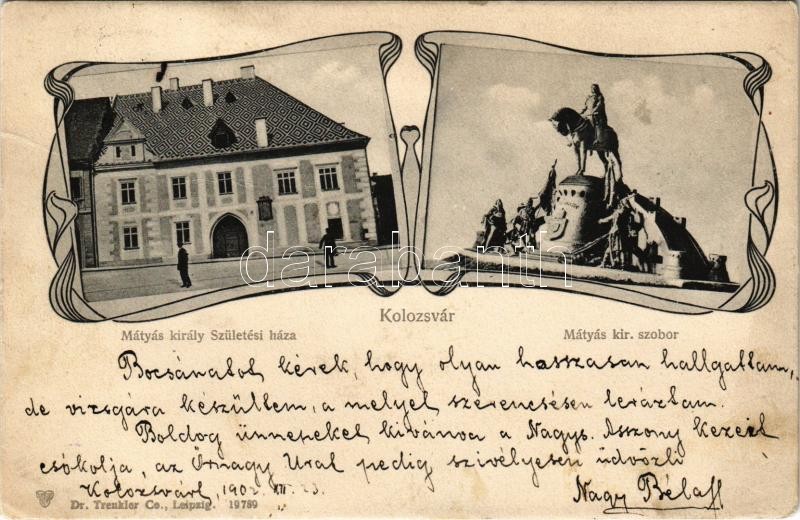 Kolozsvár
Mátyás király Születési háza
Mátyás kir. szobor
Bocsánatot kérek, hogy olyan hosszasan hallgattam,
de vizsgára készültem, a melyet szerencsésen leráztam.
Boldog ünnepeket kívánva a Nagys. Asszony kezeit
csókolja, az Őrnagy Urat pedig szivélyesen üdvözli
Kolozsvárt, 1902. XII. 23.
Nagy Béla
Dr. Trenkler Co., Leipzig. 19789
darabanth.com